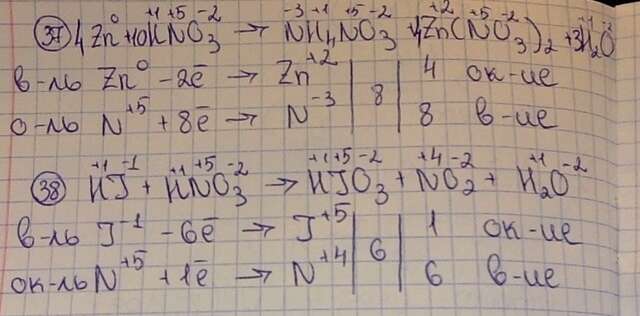 37 4Zn⁰ + 10H⁺¹N⁺⁵O₃⁻² → N⁻³H₄⁺¹N⁺⁵O₃⁻² + 4Zn⁺²(N⁺⁵O₃⁻²)₂ + 3H₂⁺¹O⁻²
в-ль Zn⁰ -2ē → Zn⁺² | 8 | 4 ок-ие
о-ль N⁺⁵ + 8ē → N⁻³ | 8 в-ие
38 H⁺¹J⁻¹ + H⁺¹N⁺⁵O₃⁻² → H⁺¹J⁺⁵O₃⁻² + N⁺⁴O₂⁻² + H₂⁺¹O⁻²
в-ль J⁻¹ -6ē → J⁺⁵ | 6 | 1 ок-ие
ок-ль N⁺⁵ + 1ē → N⁺⁴ | 6 в-ие